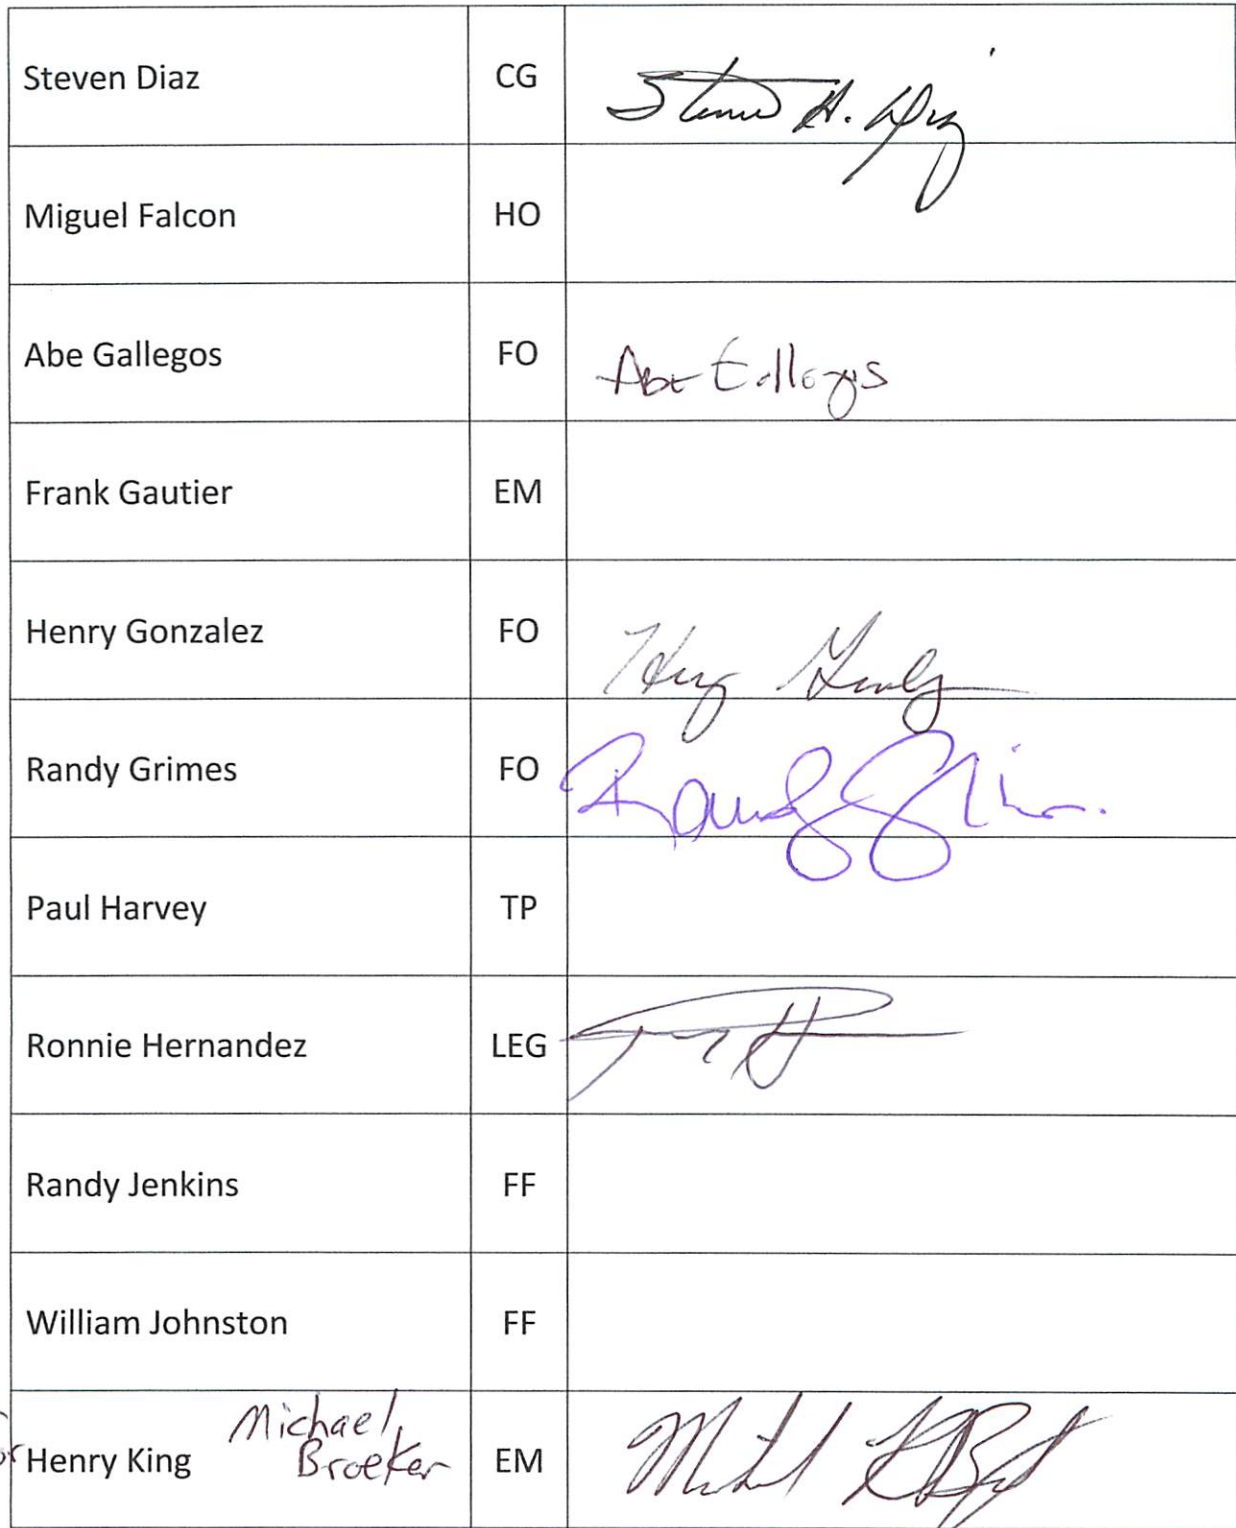 Steven Diaz CG Steven H. Diaz
Miguel Falcon HO
Abe Gallegos FO Abe Gallegos
Frank Gautier EM
Henry Gonzalez FO
Randy Grimes FO Randy Grimes
Paul Harvey TP
Ronnie Hernandez LEG
Randy Jenkins FF
William Johnston FF
Michael
Henry King Broeker EM